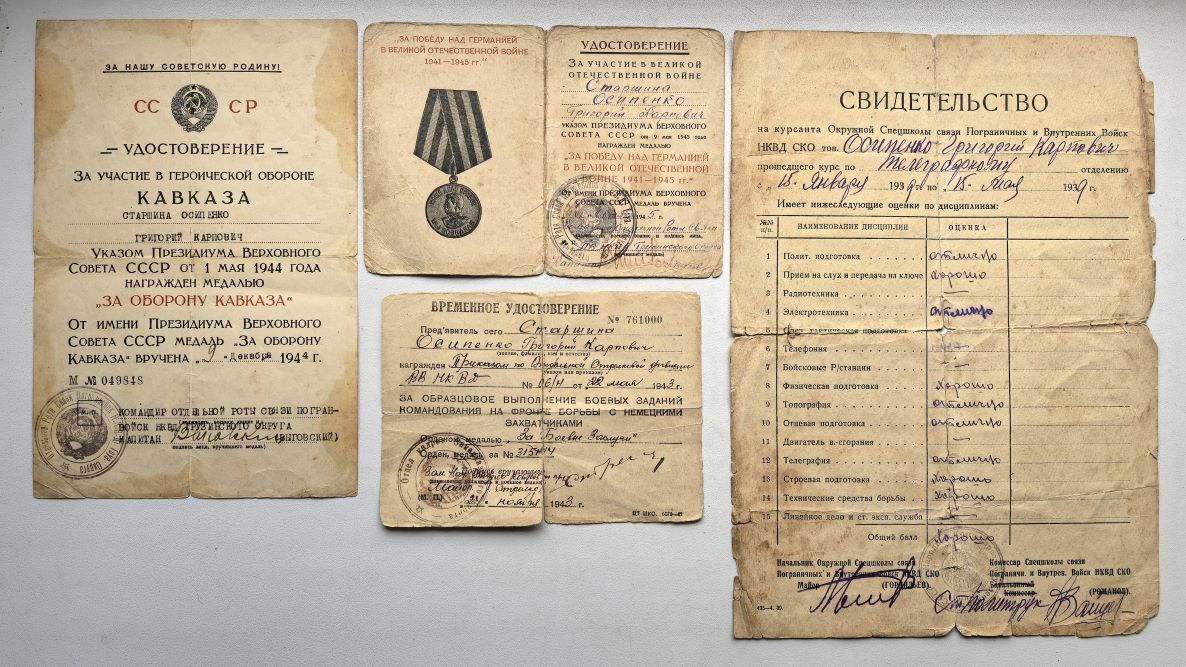 ЗА НАШУ СОВЕТСКУЮ РОДИНУ!
СС СР
УДОСТОВЕРЕНИЕ
ЗА УЧАСТИЕ В ГЕРОИЧЕСКОЙ ОБОРОНЕ
КАВКАЗА
СТАРШИНА ОСИПЕНКО
ГРИГОРИЙ КАРПОВИЧ
УКАЗОМ ПРЕЗИДИУМА ВЕРХОВНОГО
СОВЕТА СССР ОТ 1 МАЯ 1944 ГОДА
НАГРАЖДЕН МЕДАЛЬЮ
"ЗА ОБОРОНУ КАВКАЗА"
ОТ ИМЕНИ ПРЕЗИДИУМА ВЕРХОВНОГО
СОВЕТА СССР МЕДАЛЬ „ЗА ОБОРОНУ
КАВКАЗА" ВРУЧЕНА „9" декабря 1944 г.
М № 049848
КОМАНДИР ОТДЕЛЬНОЙ РОТЫ СВЯЗИ ПОГРАН-
ВОЙСК НКВД ГРУЗИНСКОГО ОКРУГА
КАПИТАН (ВЫГОВСКИЙ)
"ЗА ПОБЕДУ НАД ГЕРМАНИЕЙ
В ВЕЛИКОЙ ОТЕЧЕСТВЕННОЙ ВОЙНЕ
1941—1945 гг."
УДОСТОВЕРЕНИЕ
ЗА УЧАСТИЕ В ВЕЛИКОЙ
ОТЕЧЕСТВЕННОЙ ВОЙНЕ
Старшина
Осипенко
Григорий Карпович
УКАЗОМ ПРЕЗИДИУМА ВЕРХОВНОГО
СОВЕТА СССР от 9 мая 1945 года
НАГРАЖДЕН МЕДАЛЬЮ
"ЗА ПОБЕДУ НАД ГЕРМАНИЕЙ
В ВЕЛИКОЙ ОТЕЧЕСТВЕННОЙ
ВОЙНЕ 1941—1945 гг."
ОТ ИМЕНИ ПРЕЗИДИУМА ВЕРХОВНОГО
СОВЕТА СССР МЕДАЛЬ ВРУЧЕНА
ВРЕМЕННОЕ УДОСТОВЕРЕНИЕ
№ 761000
Пред'явитель сего Старшина
Осипенко Григорий Карпович
награжден Приказом по Отдельной Стрелковой дивизии
ВВ НКВД № 06/н от 22 мая 1943 г.
ЗА ОБРАЗЦОВОЕ ВЫПОЛНЕНИЕ БОЕВЫХ ЗАДАНИЙ
КОМАНДОВАНИЯ НА ФРОНТЕ БОРЬБЫ С НЕМЕЦКИМИ
ЗАХВАТЧИКАМИ
Орденом, медалью „За Боевые Заслуги"
Орден, медаль за №
(М. П.)
ноября 1943 г.
СВИДЕТЕЛЬСТВО
на курсанта Окружной Спецшколы связи Пограничных и Внутренних Войск
НКВД СКО тов. Осипенко Григорий Карпович
прошедшего курс по отделению
с „15" января 1939 г. по „15" мая 1939 г.
Имеет нижеследующие оценки по дисциплинам:
№№ п/п. НАИМЕНОВАНИЕ ДИСЦИПЛИН ОЦЕНКА
1 Полит. подготовка отлично
2 Прием на слух и передача на ключе Хорошо
3 Радиотехника —
4 Электротехника отлично
5 подготовка —
6 Телефония
7 Войсковые Р/станции —
8 Физическая подготовка Хорошо
9 Топография отлично
10 Огневая подготовка отлично
11 Двигатель в.-сгорания —
12 Телеграфия отлично
13 Строевая подготовка Хорошо
14 Технические средства борьбы Хорошо
15 Линейное дело и ст. эксп. служба —
Общий балл Хорошо
Начальник Окружной Спецшколы связи
Пограничных и Внутренних Войск НКВД СКО
Майор
Комиссар Спецшколы связи
Пограничн. и Внутрен. Войск НКВД СКО
Батальонный
Комиссар (РОМАНОВ).
Ст. Политрук